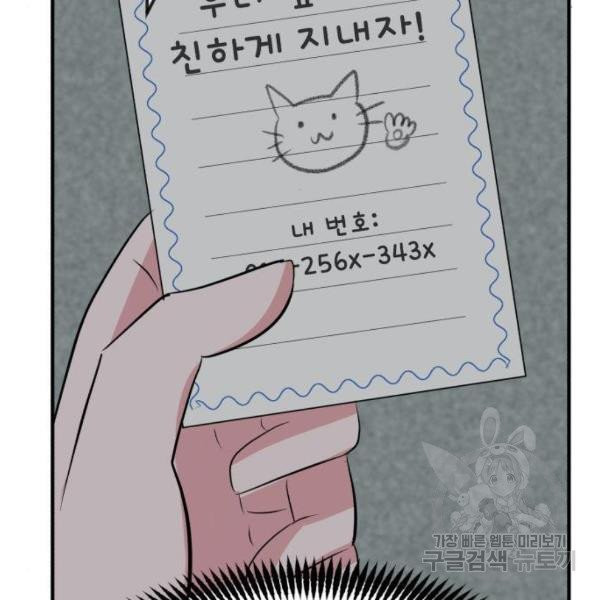 친하게 지내자!
내 번호:
-256x-343x
가장 빠른 웹툰 미리보기
구글검색 뉴토끼